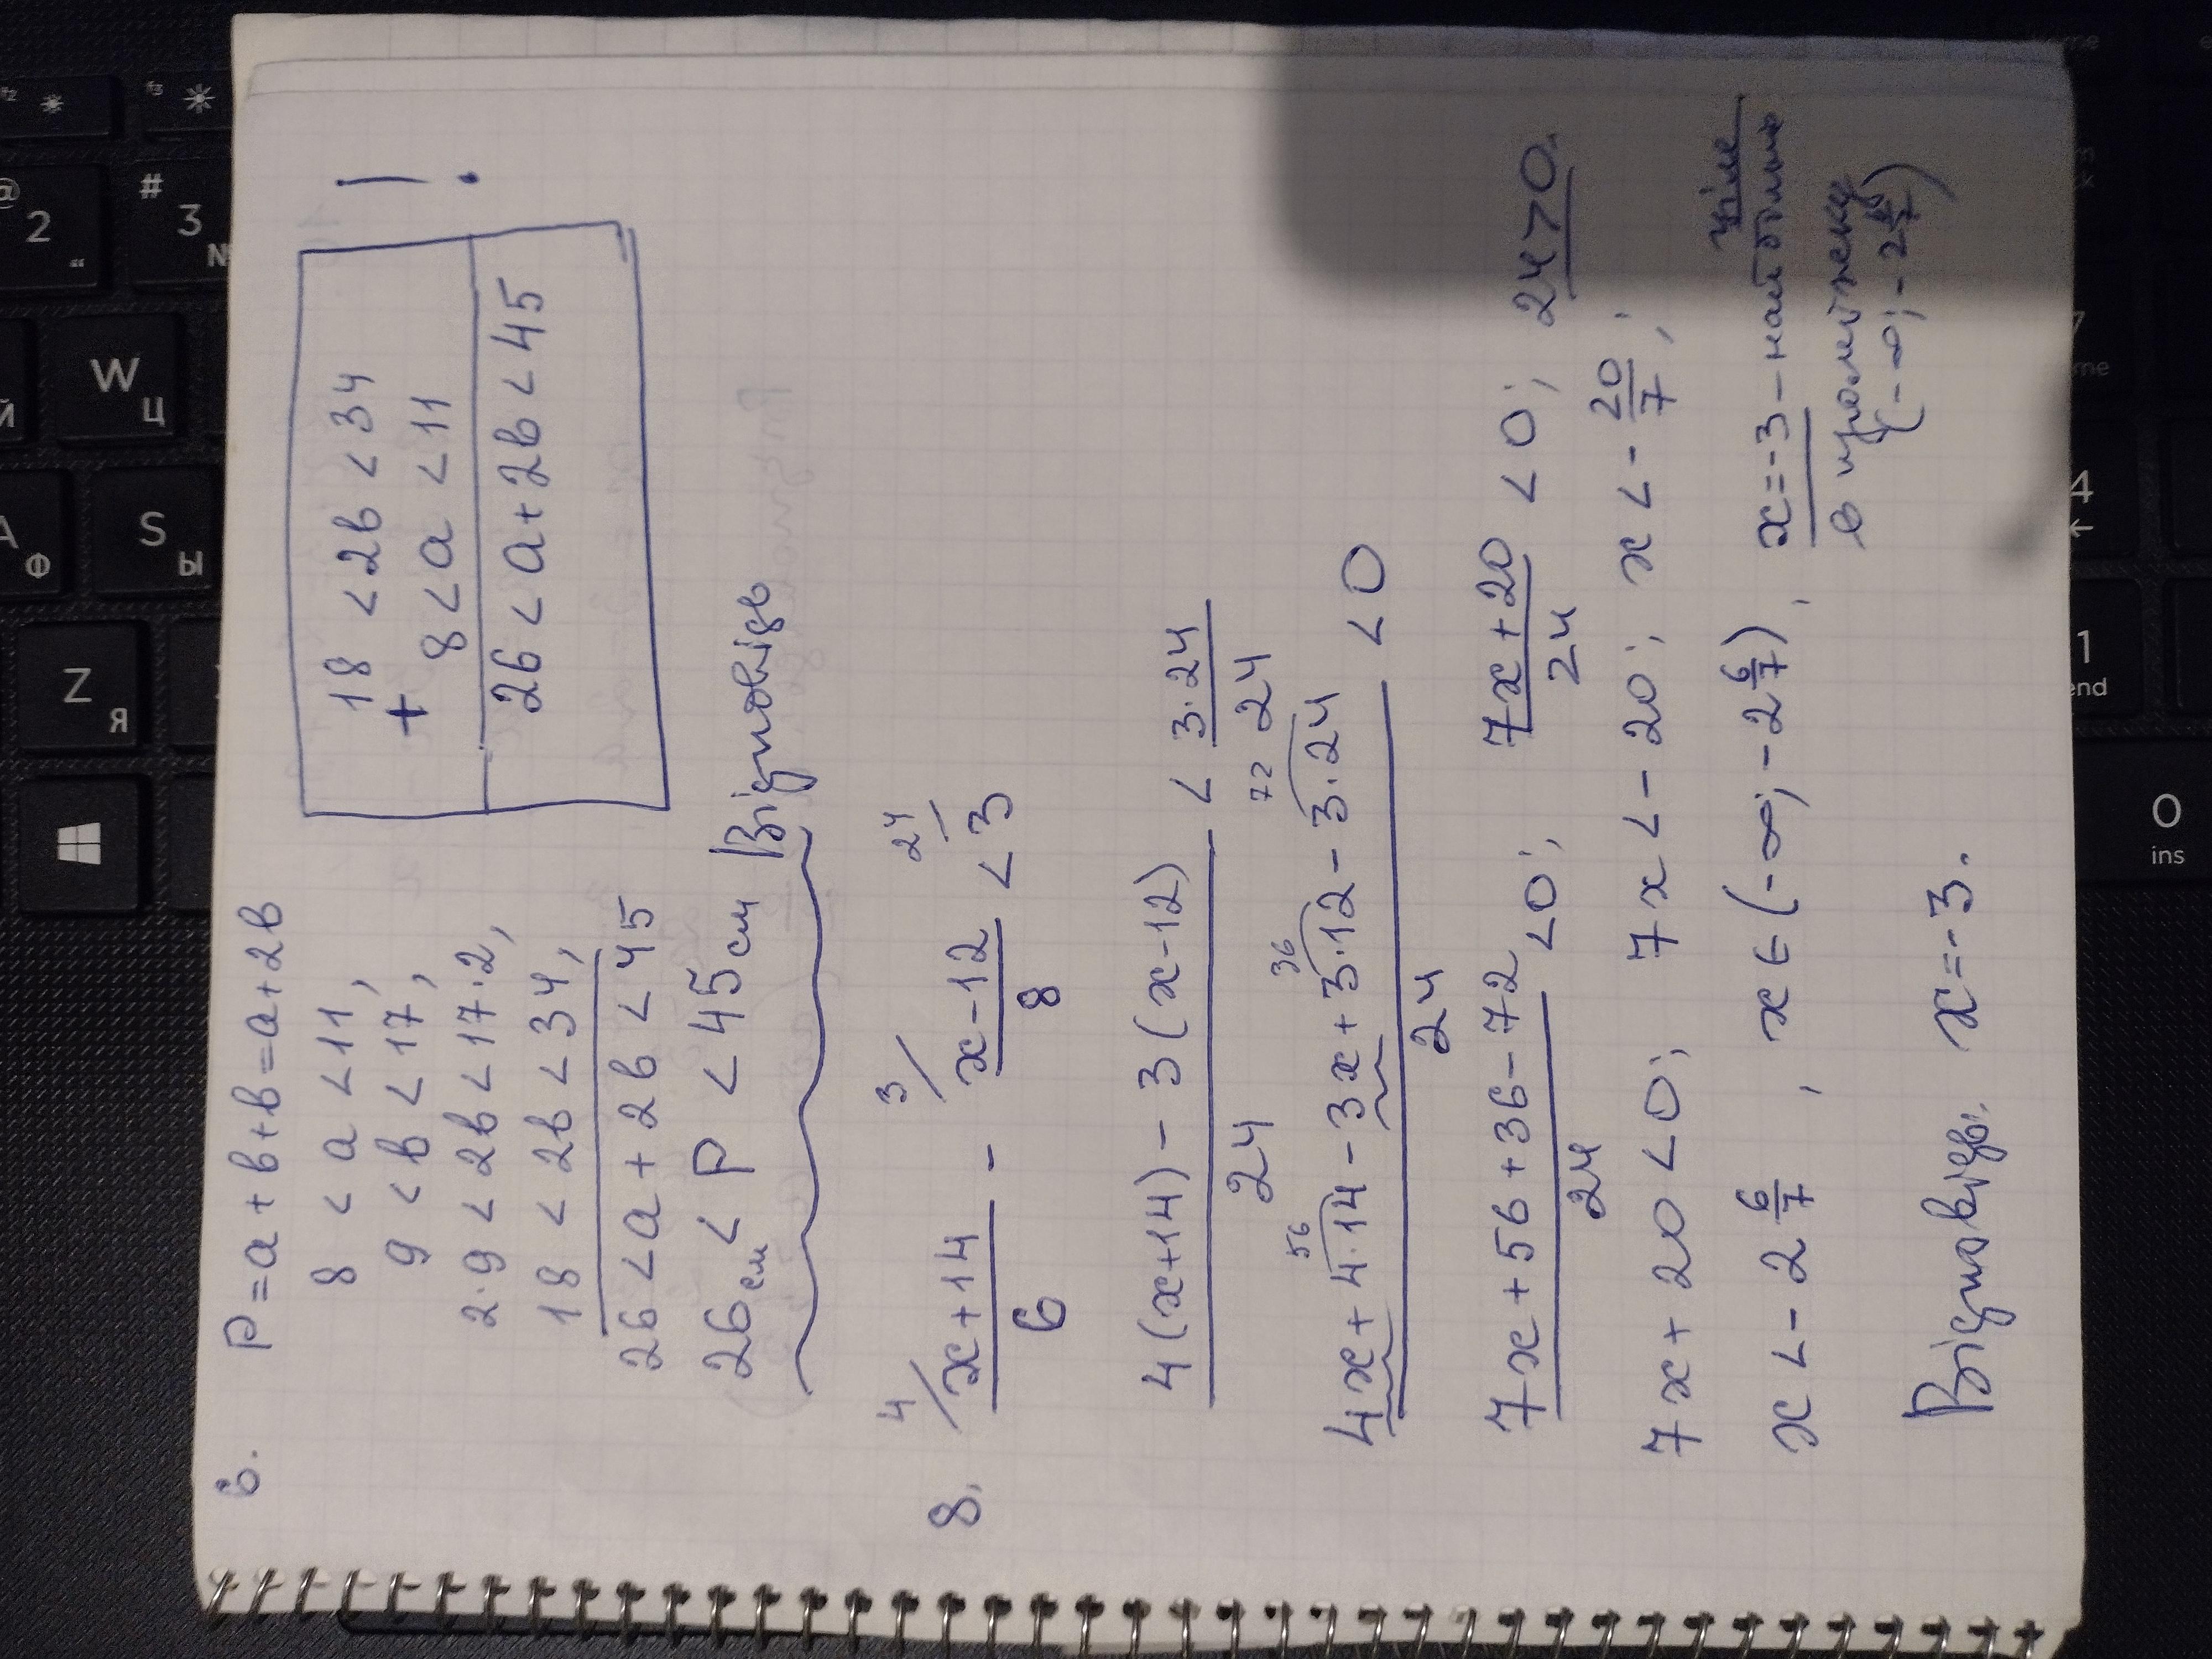 6. P = a + b + b = a + 2b
8 < a < 11,
9 < b < 17,
2·9 < 2b < 17·2,
18 < 2b < 34,
26 < a + 2b < 45
26 см < P < 45 см Відповідь
18 < 2b < 34
+
8 < a < 11
26 < a + 2b < 45
!
8. 4/ (x+14)/6 - 3/ (x-12)/8 < 24/ 3
(4(x+14) - 3(x-12))/24 < (3·24)/24
56 36 72
(4x + 4·14 - 3x + 3·12 - 3·24)/24 < 0
(7x + 56 + 36 - 72)/24 < 0; (7x + 20)/24 < 0; 24 > 0.
7x + 20 < 0; 7x < -20; x < -20/7;
x < -2 6/7, x ∈ (-∞; -2 6/7), x = -3 - найбільше
ціле
в проміжку
(-∞; -2 6/7)
Відповідь: x = -3.
f2
f3
@
2
"
#
3
№
W
Ц
Й
A
Ф
S
Ы
Z
Я
4
←
1
end
O
ins